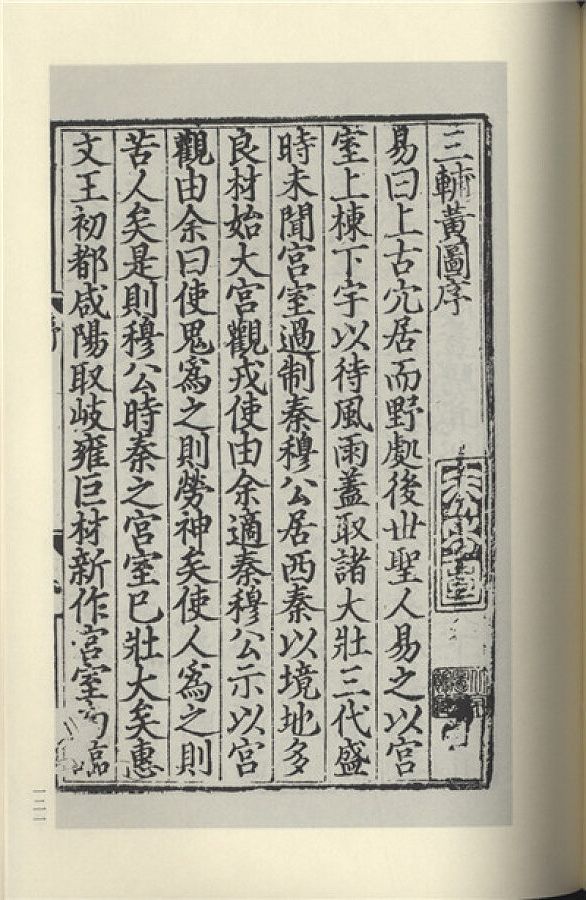 三輔黃圖序
易曰上古穴居而野處後世聖人易之以宮
室上棟下宇以待風雨蓋取諸大壯三代盛
時未聞宮室過制秦穆公居西秦以境地多
良材始大宮觀戎使由余適秦穆公示以宮
觀由余曰使鬼爲之則勞神矣使人爲之則
苦人矣是則穆公時秦之宮室已壯大矣惠
文王初都咸陽取岐雍巨材新作宮室
序